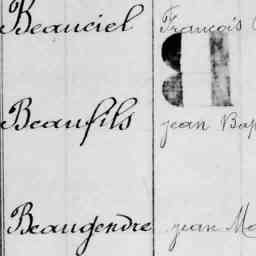 Beauciel François
B
Beaufils jean Bap
Beaugendre jean Ma